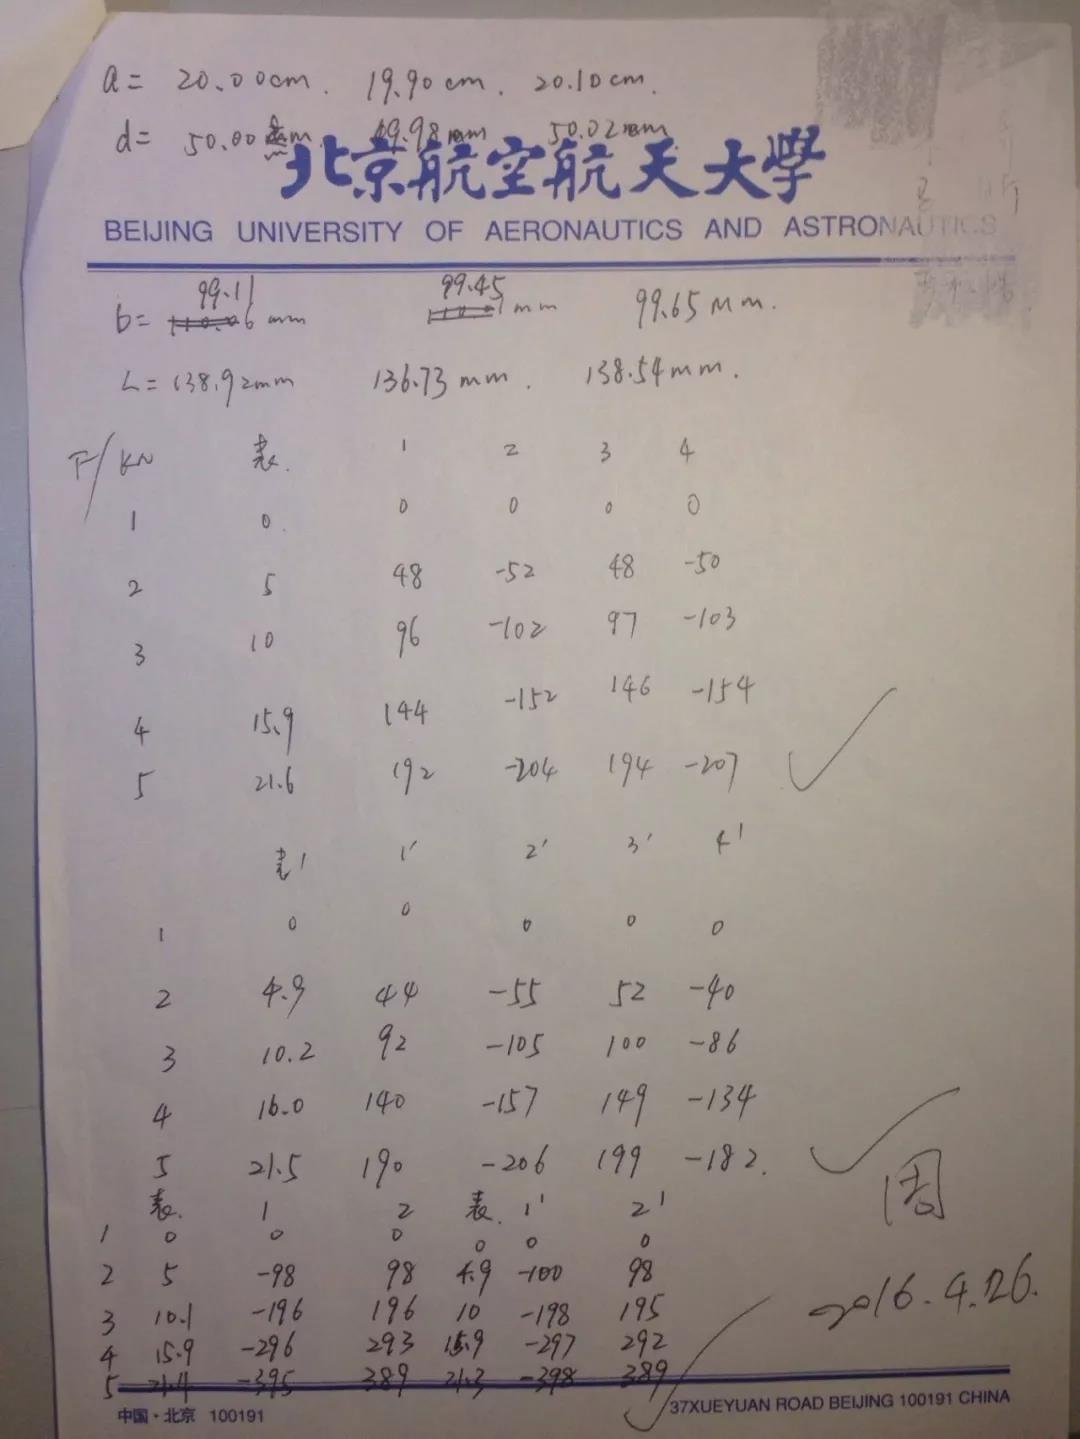 a= 20.00cm. 19.90cm. 20.10cm.
d= 50.00 mm 49.98mm 50.02mm
北京航空航天大學
BEIJING UNIVERSITY OF AERONAUTICS AND ASTRONAUTICS
99.11 99.45
b= mm mm 99.65mm.
L=138.92mm 136.73mm. 138.54mm.
F/KN 表. 1 2 3 4
1 0. 0 0 0 0
2 5 48 -52 48 -50
3 10 96 -102 97 -103
4 15.9 144 -152 146 -154
5 21.6 192 -204 194 -207
表' 1' 2' 3' 4'
1 0 0 0 0 0
2 4.9 44 -55 52 -40
3 10.2 92 -105 100 -86
4 16.0 140 -157 149 -134
5 21.5 190 -206 199 -182.
表. 1 2 表. 1' 2'
1 0 0 0 0 0 0
2 5 -98 98 4.9 -100 98
3 10.1 -196 196 10 -198 195
4 15.9 -296 293 15.9 -297 292
5 21.4 -395 389 21.3 -398 389
周
2016.4.26.
中国·北京 100191
37XUEYUAN ROAD BEIJING 100191 CHINA